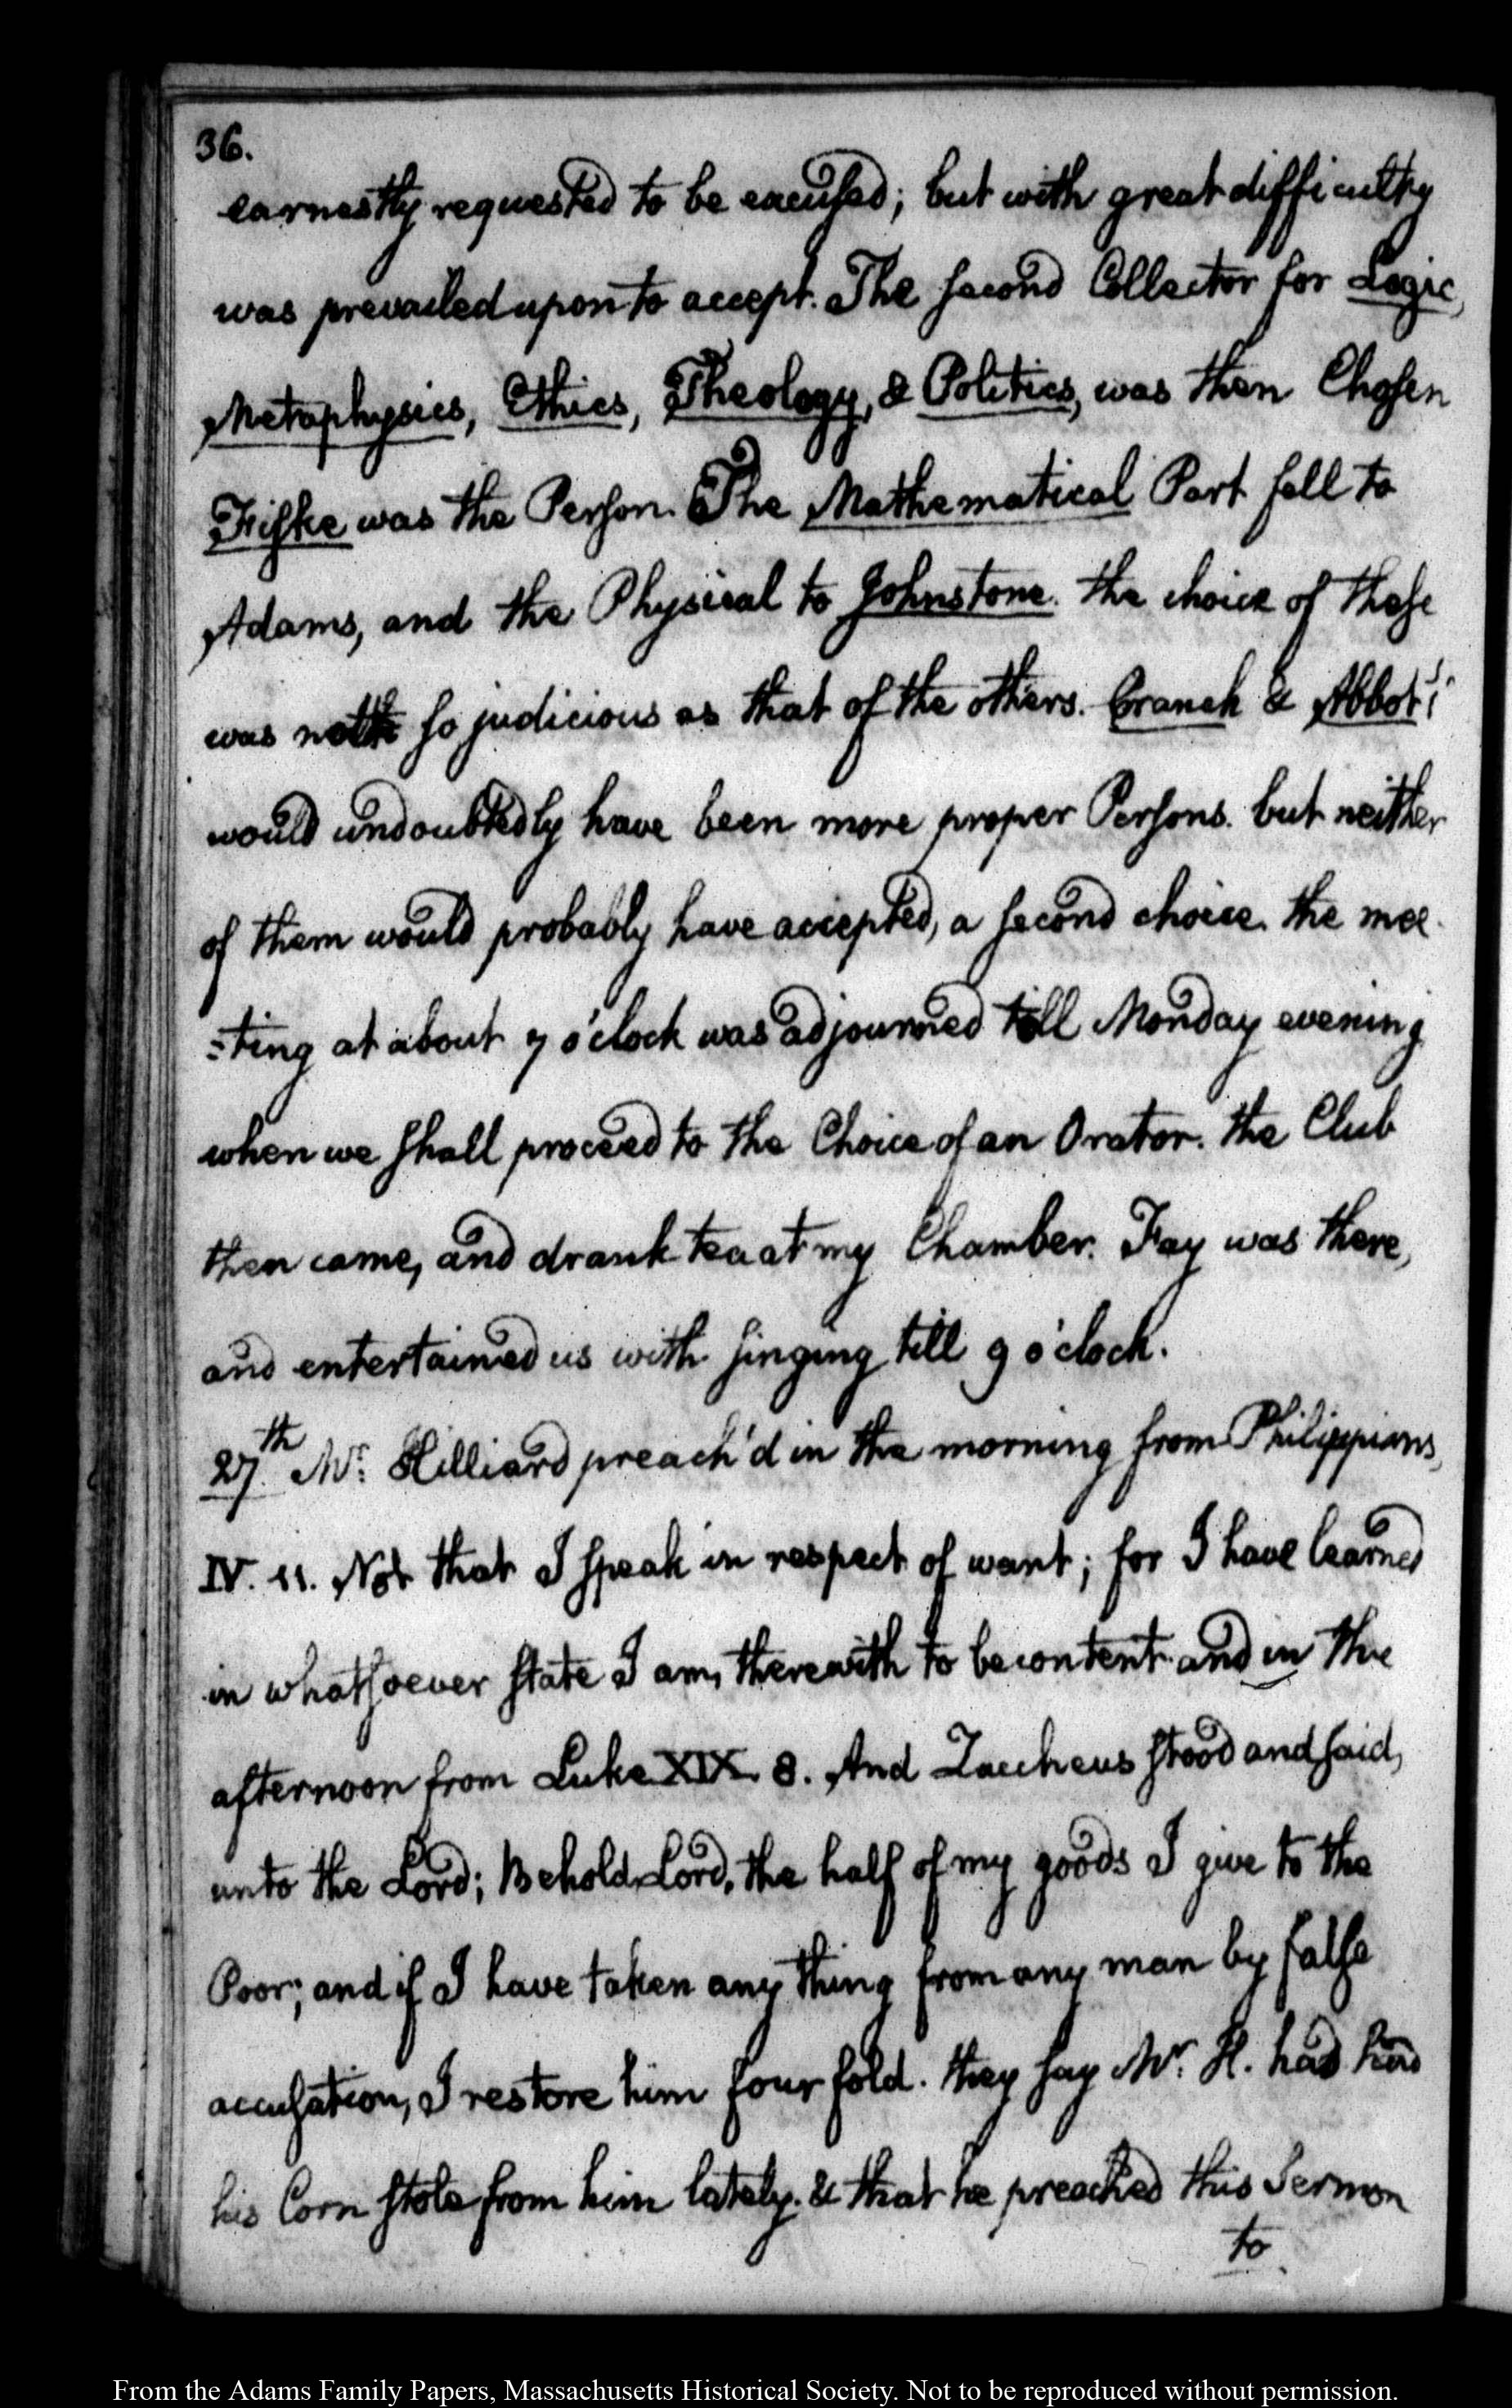 36.
earnestly requested to be excused; but with great difficulty
was prevailed upon to accept. The second Collector for Logic,
Metaphysics, Ethics, Theology, & Politics, was then Chosen
Fiske was the Person. The Mathematical Part fell to
Adams, and the Physical to Johnstone. the choice of these
was not so judicious as that of the others. Cranch & Abbot
would undoubtedly have been more proper Persons. but neither
of them would probably have accepted, a second choice. the mee-
-ting at about 7 o'clock was adjourned till Monday evening
when we shall proceed to the Choice of an Orator. the Club
then came, and drank tea at my Chamber. Fay was there,
and entertained us with singing till 9 o'clock.
27th. Mr. Hilliard preach'd in the morning from Philippians,
IV. 11. Not that I speak in respect of want; for I have learned
in whatsoever state I am, therewith to be content. and in the
afternoon from Luke XIX. 8. And Zaccheus stood and said,
unto the Lord; Behold, Lord, the half of my goods I give to the
Poor; and if I have taken any thing from any man by false
accusation, I restore him four fold. they say Mr. H. had had
his Corn stole from him lately. & that he preached this Sermon
to
From the Adams Family Papers, Massachusetts Historical Society. Not to be reproduced without permission.